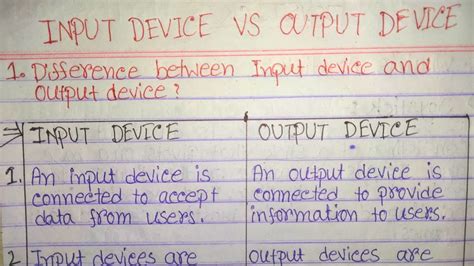 INPUT DEVICE VS OUTPUT DEVICE
1. Difference between Input device and
output device?
⇒ INPUT DEVICE OUTPUT DEVICE
1. An input device is An output device is
connected to accept connected to provide
data from users. information to users.
2 Input devices are output devices are